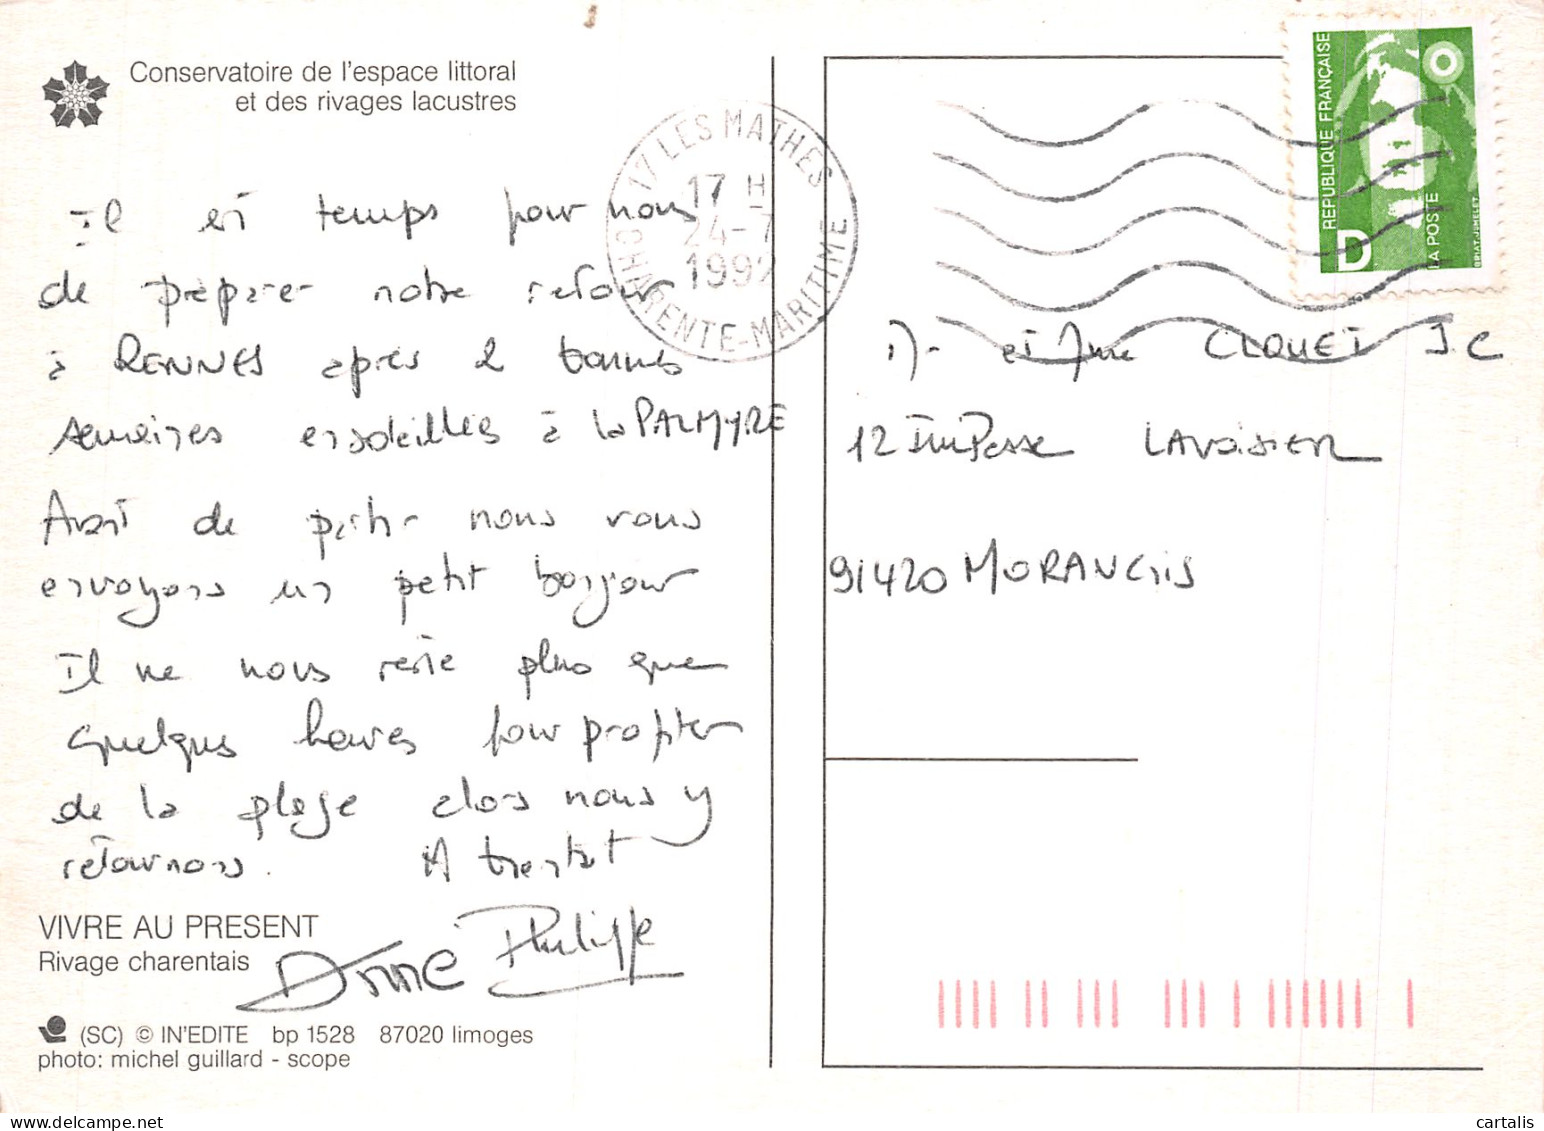 Conservatoire de l'espace littoral
et des rivages lacustres
Il est temps pour nous
de préparer notre retour
à RENNES après 2 bonnes
semaines ensoleillées à la PALMYRE
Avant de partir nous vous
envoyons un petit bonjour
Il ne nous reste plus que
quelques heures pour profiter
de la plage alors nous y
retournons. A bientôt
Anne Philippe
VIVRE AU PRESENT
Rivage charentais
(SC) © IN'EDITE bp 1528 87020 limoges
photo: michel guillard - scope
17 LES MATHES
17 H
24-7
1992
CHARENTE-MARITIME
REPUBLIQUE FRANÇAISE
D
LA POSTE
BRIAT-JUMELET
et Mme CLOUET J.C
12 Impasse LAVOISIER
91420 MORANGIS
cartalis